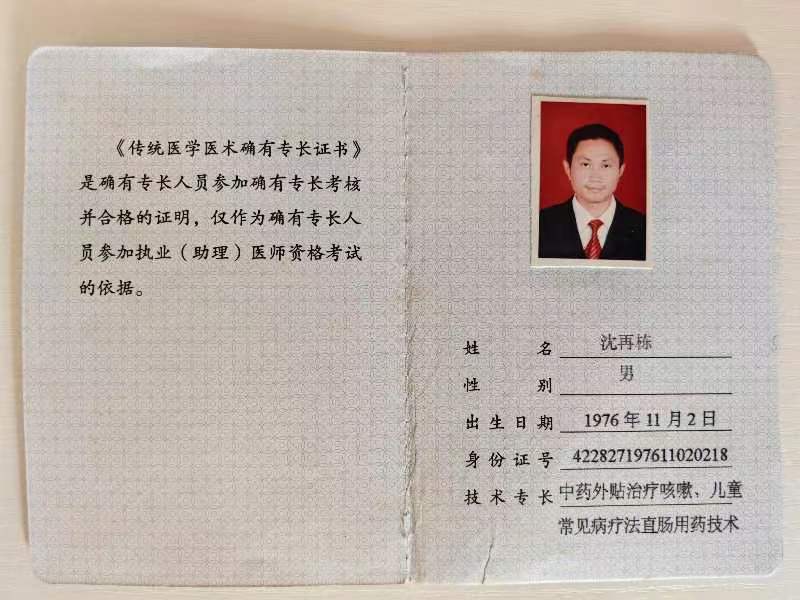 《传统医学医术确有专长证书》
是确有专长人员参加确有专长考核
并合格的证明，仅作为确有专长人
员参加执业（助理）医师资格考试
的依据。
姓 名 沈再栋
性 别 男
出生日期 1976 年 11 月 2 日
身份证号 422827197611020218
技术专长 中药外贴治疗咳嗽、儿童
常见病疗法直肠用药技术